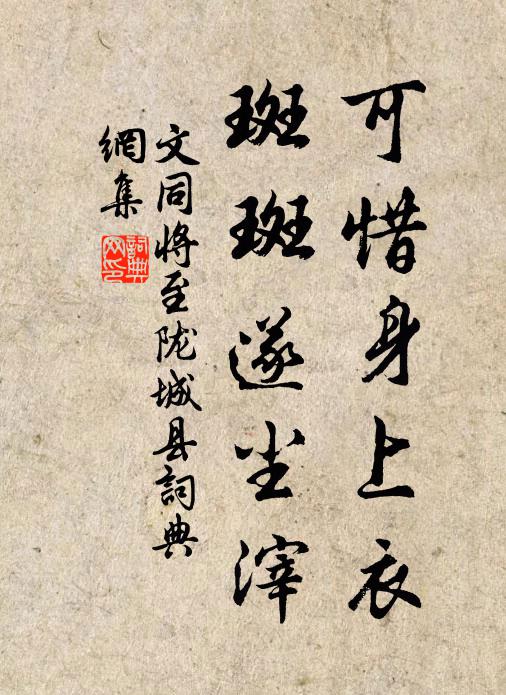 可惜身上衣
斑斑遂尘滓
文同将至陇城县詞典
網集
詞典
网印